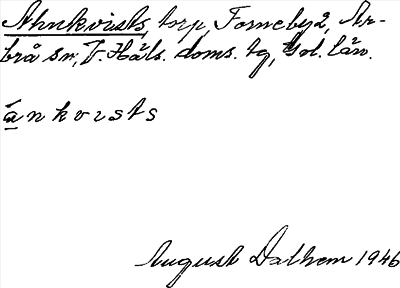 Ahnkvists, torp, Forneby 2, Ar-
brå sn, V. Häls. doms. tg, Gäl. län.
á̱nkvists
August Dalhem 1946